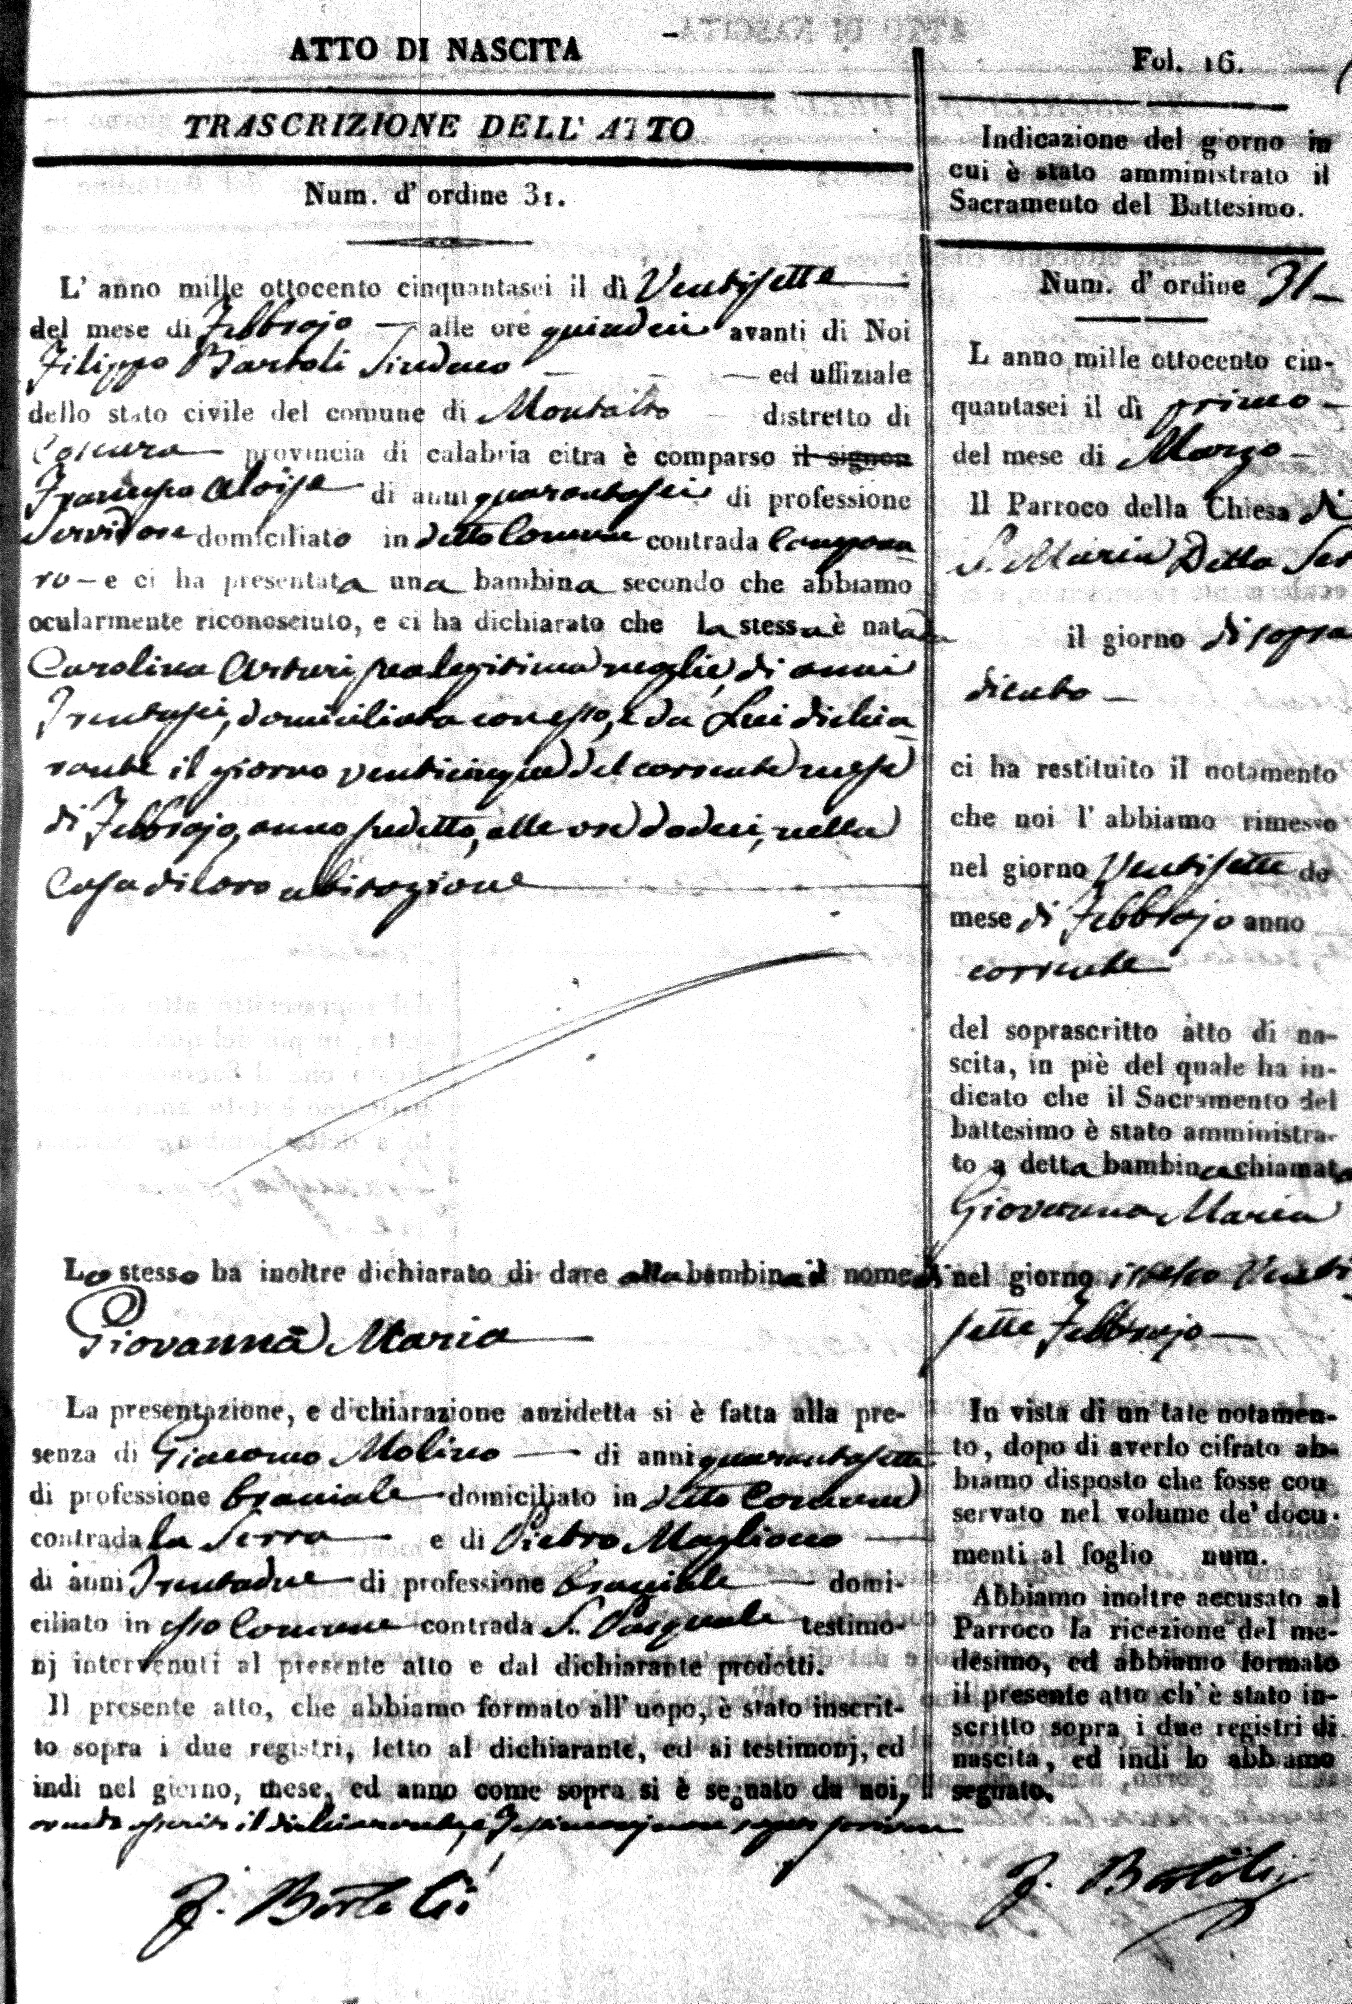 ATTO DI NASCITA
TRASCRIZIONE DELL' ATTO
Num. d' ordine 31.
L' anno mille ottocento cinquantasei il dì Ventisette
del mese di Febbrajo — alle ore quindici avanti di Noi
Filippo Bartoli Sindaco — ed uffiziale
dello stato civile del comune di Montalto — distretto di
Cosenza provincia di calabria citra è comparso il signor
Francesco Aloise di anni quarantasei di professione
Servidore domiciliato in detto Comune contrada
ro — e ci ha presentata una bambina secondo che abbiamo
ocularmente riconosciuto, e ci ha dichiarato che la stessa è nata da
Carolina Arturi sua legitima moglie, di anni
Trentasei, domiciliata con esso, e da Lui dichia
rante il giorno venticinque del corrente mese
di Febbrajo, anno sudetto, alle ore dodeci, nella
Casa di loro abitazione
Lo stesso ha inoltre dichiarato di dare alla bambina il nome di
Giovanna Maria
La presentazione, e dichiarazione anzidetta si è fatta alla pre-
senza di Giacomo Molino — di anni quarantasette
di professione bracciale domiciliato in detto Comune
contrada la Serra — e di Pietro Magliocco
di anni Trentadue di professione bracciale — domi-
ciliato in esso Comune contrada S. Pasquale testimo-
nj intervenuti al presente atto e dal dichiarante prodotti.
Il presente atto, che abbiamo formato all' uopo, è stato inscrit-
to sopra i due registri, letto al dichiarante, ed ai testimonj, ed
indi nel giorno, mese, ed anno come sopra si è segnato da noi,
avendo asserito il dichiarante, e Testimonj non saper scrivere
F. Bartoli
Fol. 16.
Indicazione del giorno in
cui è stato amministrato il
Sacramento del Battesimo.
Num. d' ordine 31
L anno mille ottocento cin-
quantasei il dì primo
del mese di Marzo
Il Parroco della Chiesa di
S. Maria Della Ser
il giorno di sopra
dicato
ci ha restituito il notamento
che noi l' abbiamo rimesso
nel giorno Ventisette do
mese di Febbrajo anno
corrente
del soprascritto atto di na-
scita, in piè del quale ha in-
dicato che il Sacramento del
battesimo è stato amministra-
to a detta bambina chiamata
Giovanna Maria
nel giorno istesso Venti
sette Febbrajo
In vista di un tale notamen-
to, dopo di averlo cifrato ab-
biamo disposto che fosse con
servato nel volume de' docu-
menti al foglio num.
Abbiamo inoltre accusato al
Parroco la ricezione del me-
desimo, ed abbiamo formato
il presente atto ch' è stato in-
scritto sopra i due registri di
nascita, ed indi lo abbiamo
segnato.
F. Bartoli